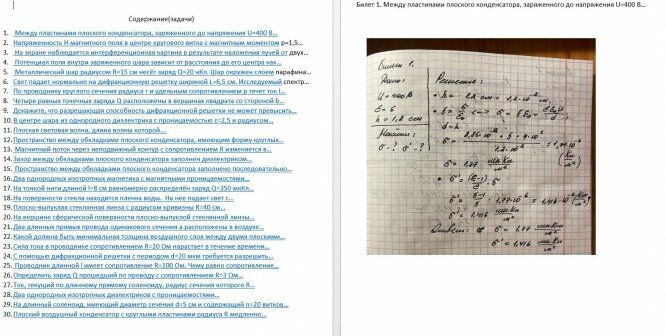 Содержание(задачи)
1. Между пластинами плоского конденсатора, заряженного до напряжения U=400 В...
2. Напряженность H магнитного поля в центре кругового витка с магнитным моментом p=1,5...
3. На экране наблюдается интерференционная картина в результате наложения лучей от двух...
4. Потенциал поля внутри заряженного шара зависит от расстояния до его центра как...
5. Металлический шар радиусом R=15 см несёт заряд Q=20 нКл. Шар окружен слоем парафина...
6. Свет падает нормально на дифракционную решетку шириной L=6,5 см. Исследуемый спектр...
7. По проводнику круглого сечения радиуса r и удельным сопротивлением p течет ток I...
8. Четыре равных точечных заряда Q расположены в вершинах квадрата со стороной b...
9. Докажите, что разрешающая способность дифракционной решетки не может превысить...
10. В центре шара из однородного диэлектрика с проницаемостью ε=2,5 и радиусом...
11. Плоская световая волна, длина волны которой...
12. Пространство между обкладками плоского конденсатора, имеющим форму круглых...
13. Магнитный поток через неподвижный контур с сопротивлением R изменяется в...
14. Зазор между обкладками плоского конденсатора заполнен диэлектриком...
15. Пространство между обкладками плоского конденсатора заполнено последовательно...
16. Два однородных изотропных магнетика с магнитными проницаемостями...
17. На тонкой нити длиной l=8 см равномерно распределён заряд Q=350 мкКл...
18. На поверхности стекла находится пленка воды. На нее падает свет с...
19. Плоско-выпуклая стеклянная линза с радиусом кривизны R=40 см...
20. На вершине сферической поверхности плоско-выпуклой стеклянной линзы...
21. Два длинных прямых провода одинакового сечения a расположены в воздухе...
22. Какой должна быть минимальная толщина воздушного слоя между двумя плоскими...
23. Сила тока в проводнике сопротивлением R=20 Ом нарастает в течение времени...
24. С помощью дифракционной решетки с периодом d=20 мкм требуется разрешить...
25. Проводник длиной l имеет сопротивление R=100 Ом. Чему равно сопротивление...
26. Определить заряд Q прошедший по проводу с сопротивлением R=3 Ом...
27. Ток, текущий по длинному прямому соленоиду, радиус сечения которого R...
28. Два однородных изотропных диэлектриков с проницаемостями...
29. На длинный соленоид, имеющий диаметр сечения d=5 см и содержащий n=20 витков...
30. Плоский воздушный конденсатор с круглыми пластинами радиуса R медленно...
Билет 1. Между пластинами плоского конденсатора, заряженного до напряжения U=400 В...
Билет 1.
Дано:
U=400 В
ε=6
h=1,2 см
Найти:
σ-? σ'-?
Решение:
h = 1,2 см = 1,2·10⁻² м
d=h
σ = 1,77 мкКл/м²
σ' = (ε-1)/ε · σ
σ' = 1,416 мкКл/м²
Ответ: σ = 1,77 мкКл/м²
σ' = 1,416 мкКл/м²